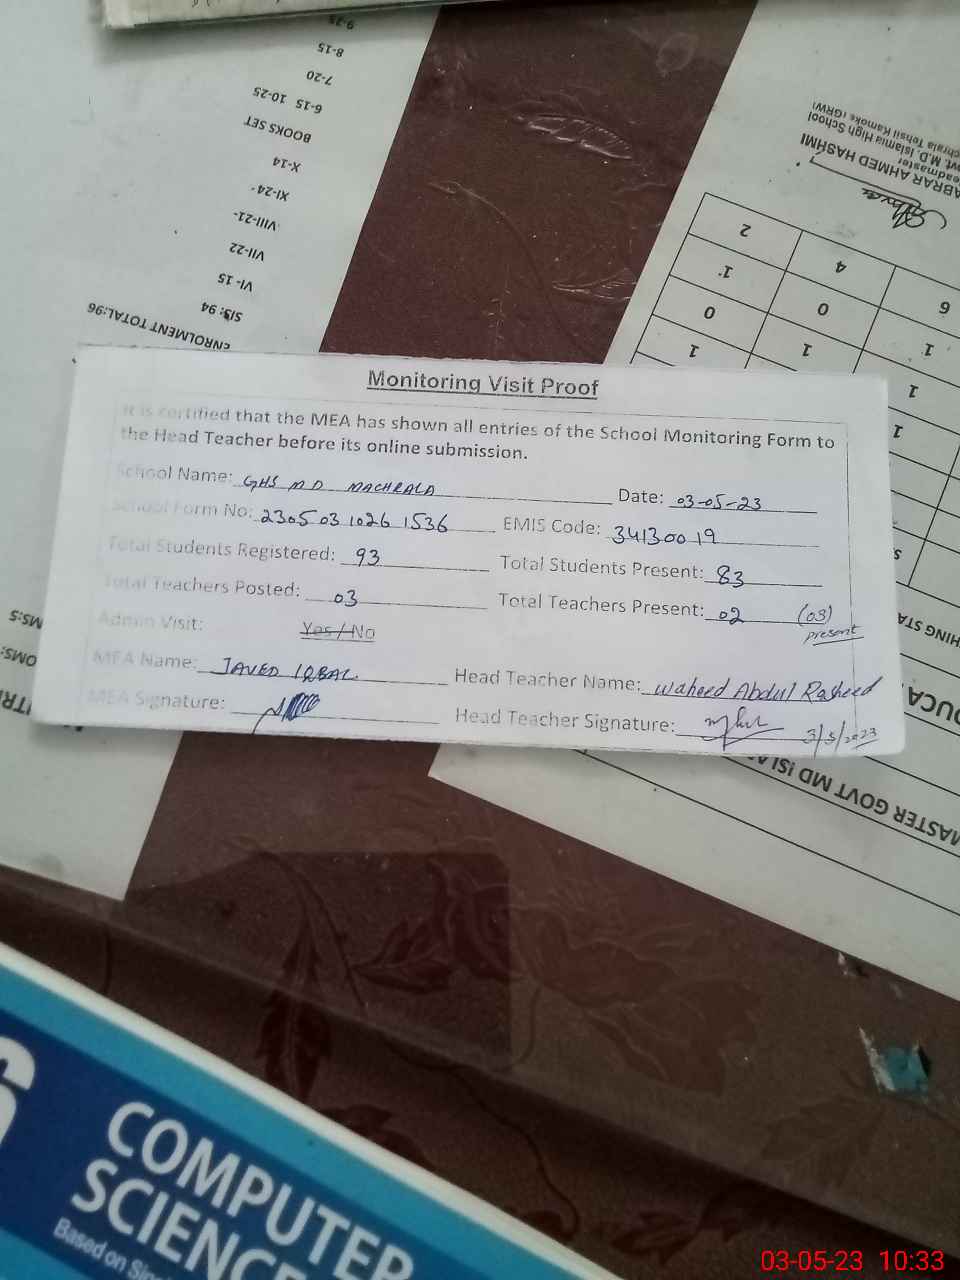 9-25
8-15
7-20
6-15 10-25
BOOKS SET
X-14
XI-24-
VIII-21-
VII-22
VI-15
SIS: 94
ENROLMENT TOTAL:96
ABRAR AHMED HASHMI
Headmaster
Govt. M.D. Islamia High School
Machrala Tehsil Kamoke (GRW)
2 4 6
1 0 1
0 1 1
1
Monitoring Visit Proof
It is certified that the MEA has shown all entries of the School Monitoring Form to
the Head Teacher before its online submission.
School Name: GHS MD MACHRALA Date: 03-05-23
School Form No: 2305 03 1026 1536 EMIS Code: 34130019
Total Students Registered: 93 Total Students Present: 83
Total Teachers Posted: 03 Total Teachers Present: 02 (03)
present
Admin Visit: Yes / No
MEA Name: JAVED IQBAL Head Teacher Name: Waheed Abdul Rasheed
MEA Signature: Head Teacher Signature: 3/5/2023
MASTER GOVT MD ISLA
COMPUTER
SCIENCE
Based on Sin
03-05-23 10:33